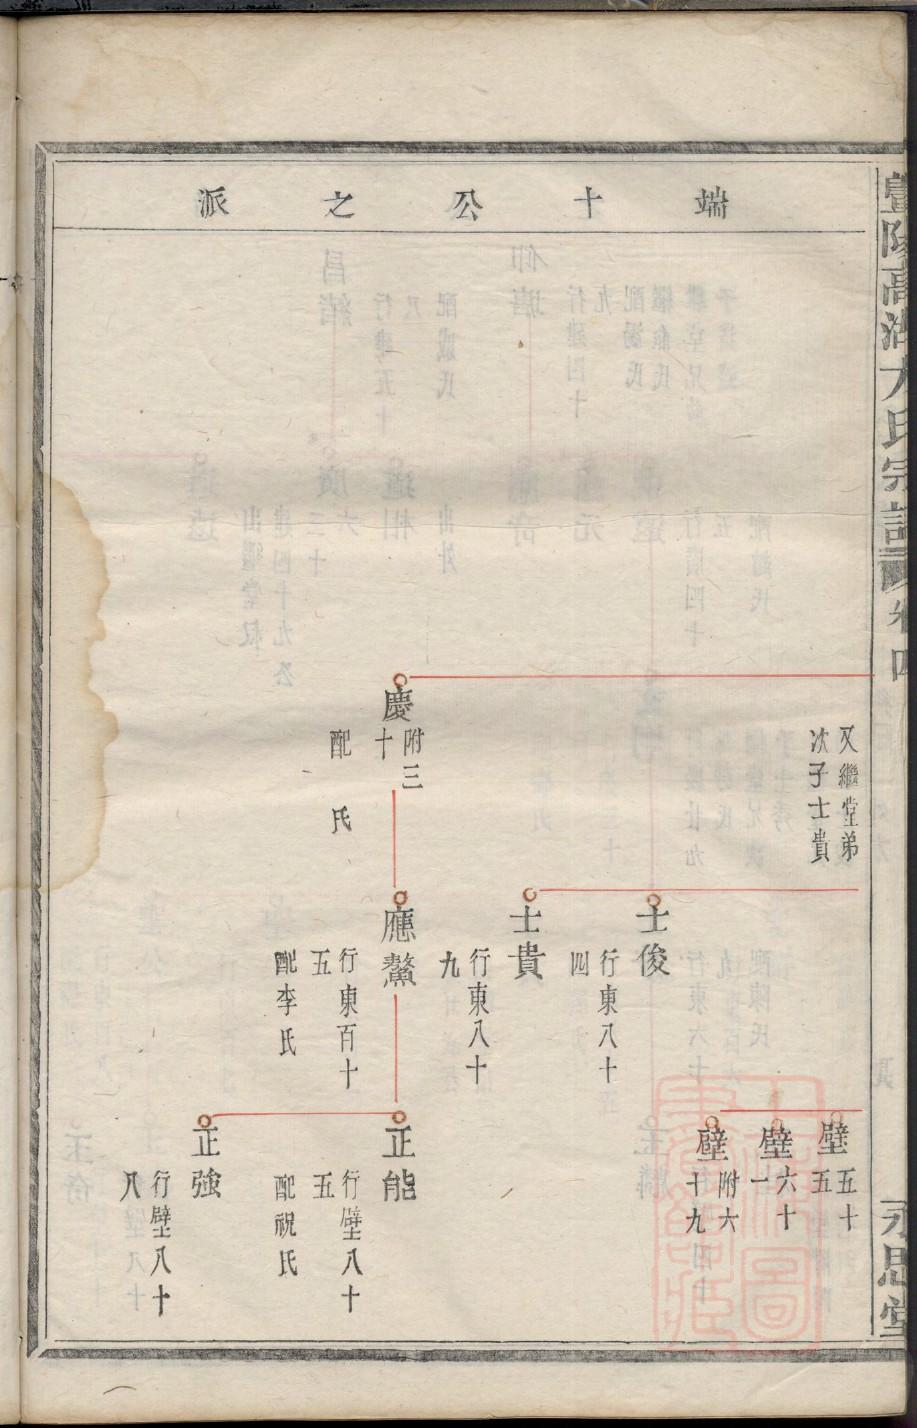 端十公之派
豐陽高湖方氏宗譜 卷四
永思堂
又繼堂弟
次子士貴
壁五十
五
壁六十
一
壁附六
十九
士俊
行東八十
四
士貴
行東八十
九
慶附三
十
配 氏
應鰲
行東百十
五
配李氏
正能
行壁八十
五
配祝氏
正強
行壁八十
八